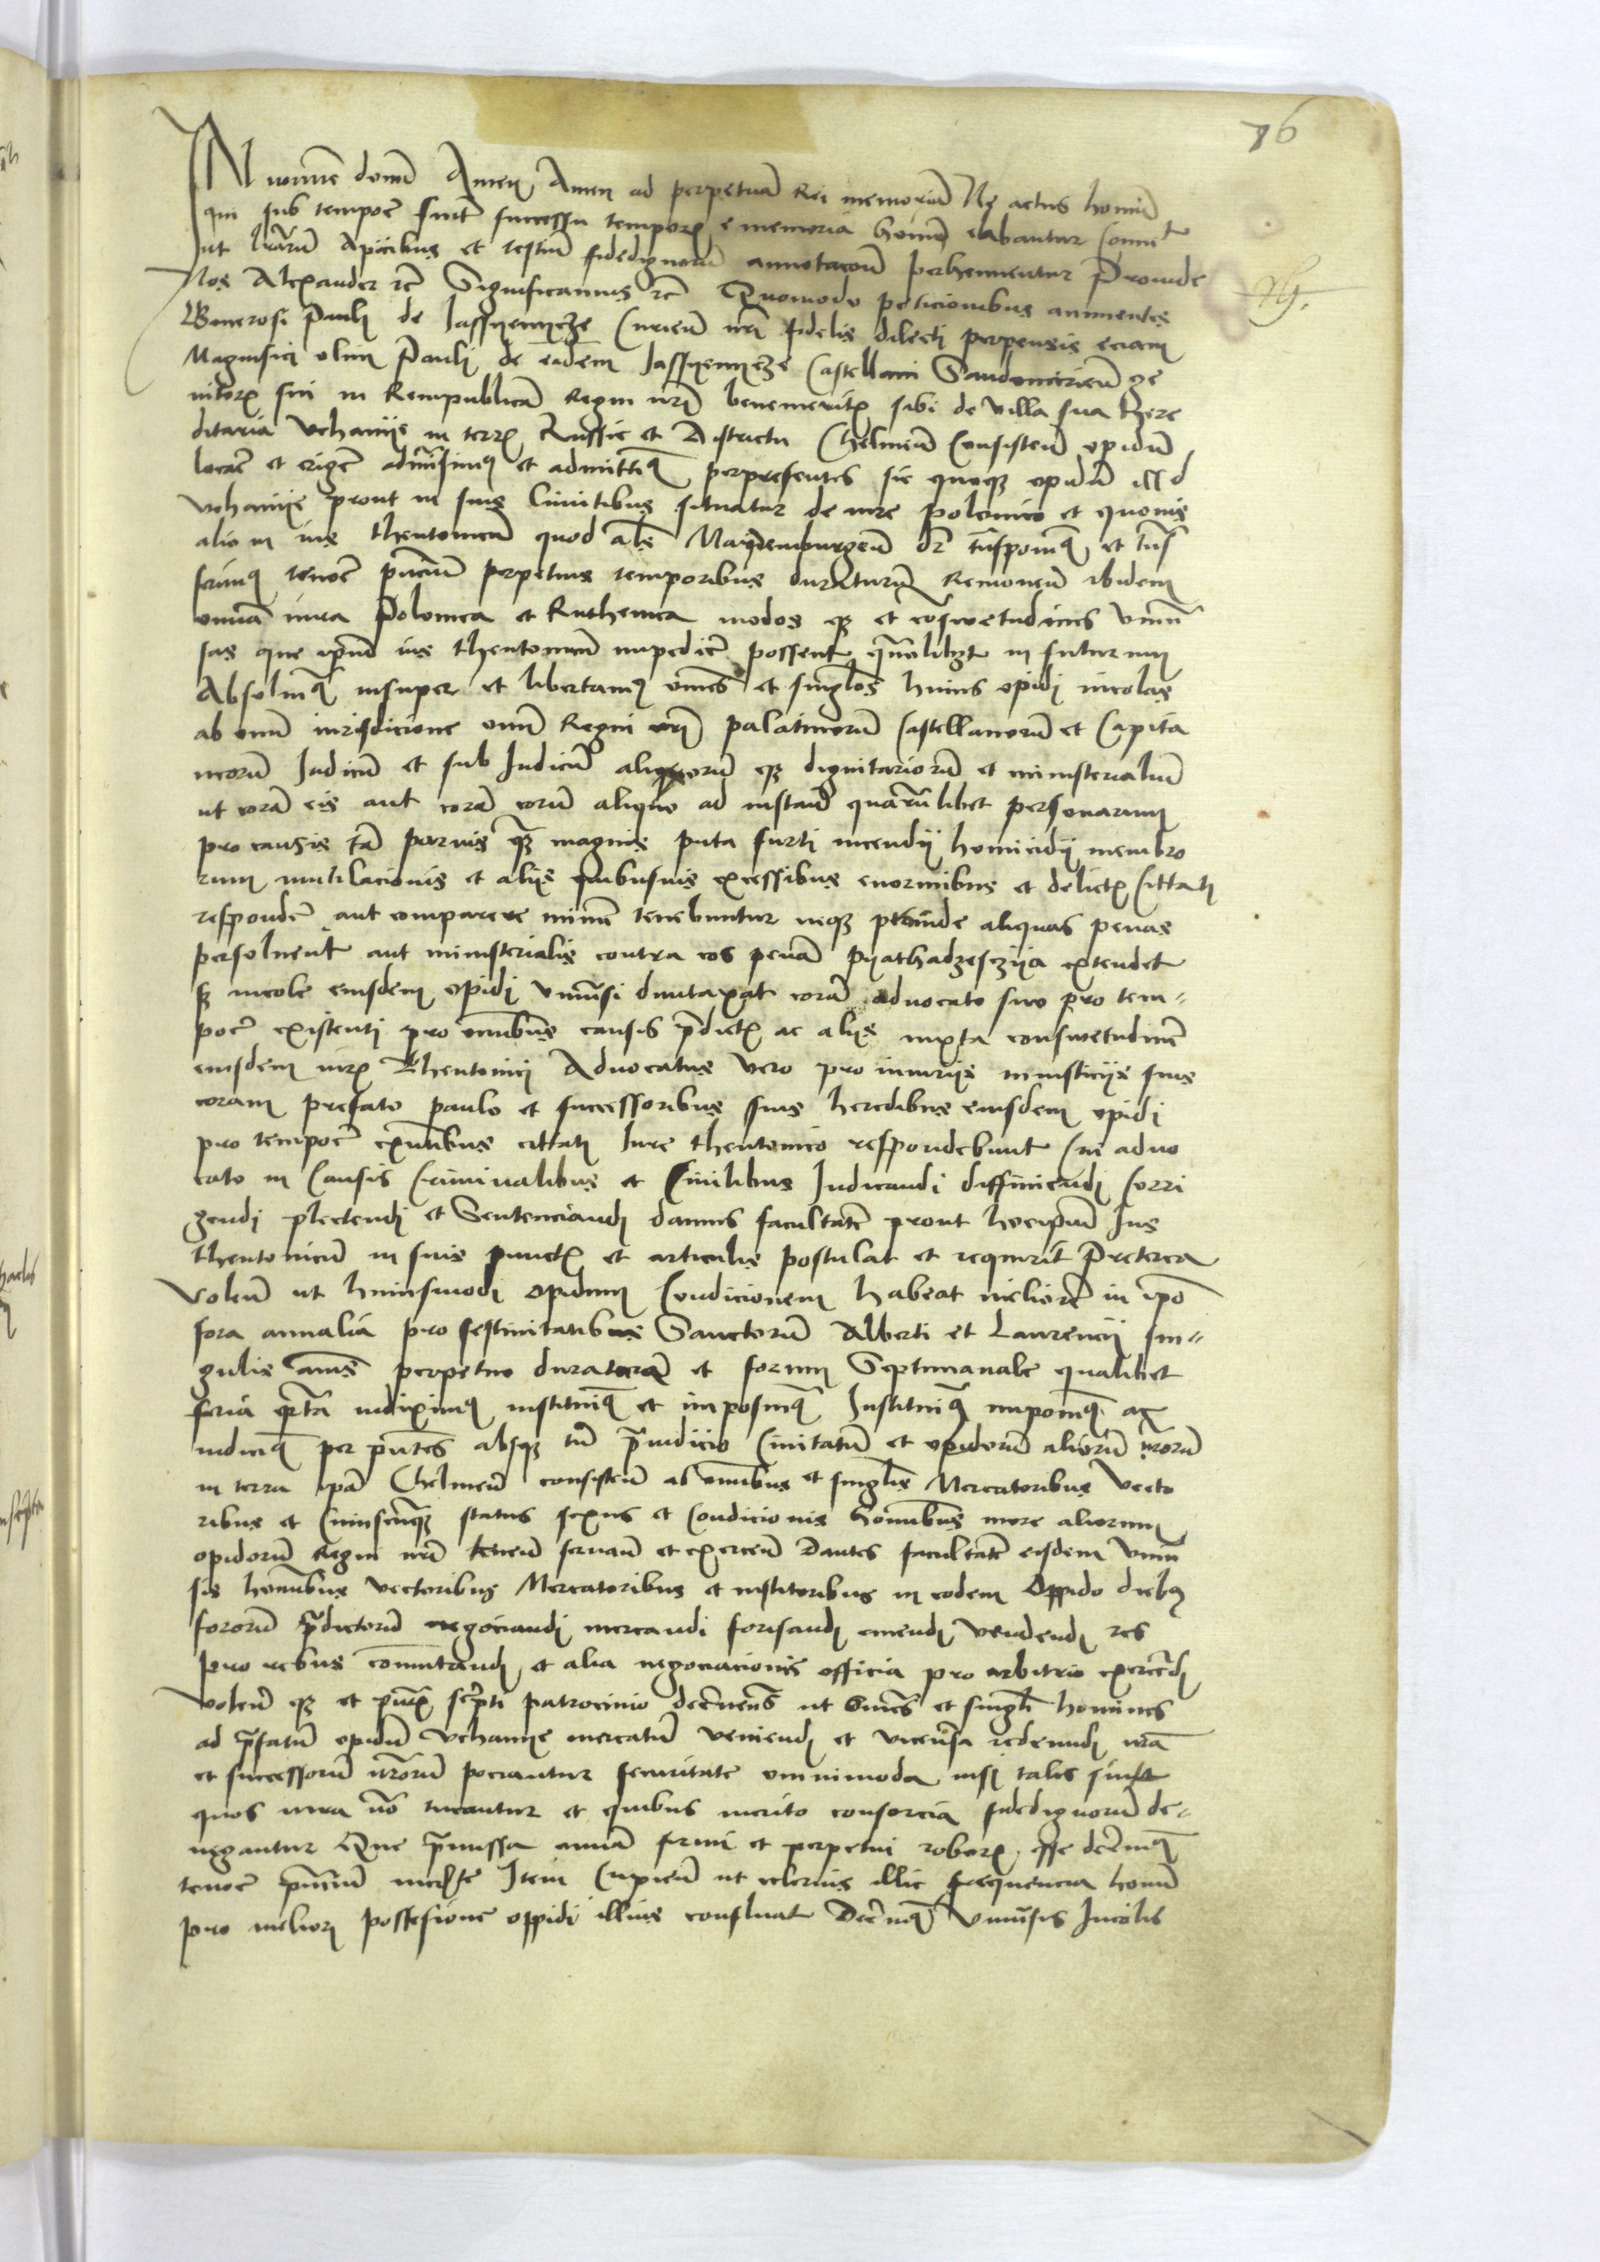 76
IN no͞ie domi͞ Amen Amen ad perpetua͞ Rei memoria͞ Ne actus homi͞
qui sub tempor͞ siu͞t successu tempor͞ e memoria homi͞ elabantur Conuit͞
ut l͞rar͞u Apicibus et testiu͞ fidedignoru͞ annotacou͞ perhennentur Proinde
Nos Alexander rc͞ Significamus rc͞ Quomodo peticionibus annuentes
Generosi Pauli de Jassyenyecze Curieu͞ nr͞i fidelis dilecti perpensis eciam
Magnifici olim Pauli de ea͞dem Jassyenyecze Castellani Sandomirieu͞ ge
nitor͞ sui in Rempublica͞ Regni nr͞i benemerit͞ sibi de villa sua here
ditaria Vchanye in terr͞ Russie et Districtu Chelmeu͞ Consisteu͞ opidu͞
locar͞ et eriger͞ admisimq et admittiq͞ perpresentes sic quoqz opidu͞ illd
Vchanye prout in suis limitibus situatur de iure polonico et quouis
alio in ius theutonicu͞ quod al͞s Maydemburgeu͞ dr͞ tra͞nsponiq͞ et tra͞ns
ferimq tenor͞ pn͞ciu͞ perpetuis temporibus duraturu͞ Remoueu͞ ibidem
omnia͞ iura Polonica et Ruthenica modos qz et co͞nswetudines vniu͞
sas que ip͞m ius theutonicu͞ impedir͞ possent qua͞litlibet in futurum
Absoluiq͞ insuper et libertamq omn͞es et singl͞os huius opidi incolas
ab omni͞ iurisdicione omni͞ Regni nr͞i palatinoru͞ Castellanoru͞ et Capita
neoru͞ Judicu͞ et sub Judicu͞ alioru͞ qz dignitarioru͞ et ministerialiu͞
ut cora͞ eis aut cora͞ eoru͞ aliquo ad instanc͞ quaru͞libet personarum
pro causis ta͞ paruis qz͞ magnis puta furti incendij homicidij membro
rum mutilacionis et alijs quibusuis excessibus enormibus et delict͞ Cittati
responder͞ aut comparere minie͞ tenebuntur neqz proinde aliquas penas
persoluent͞ aut ministerialis contra eos pena͞ pyathadzesszyia extendet
sz incole eiusdem opidi vniu͞si dumtaxat cora͞ aduocato suo pro tem-
por͞ existenti pro omn͞ibus causis pr͞edict͞ ac alijs iuxta conswetudine͞
eiusdem iur͞ Theutonici Aduocatus vero pro iniurijs iniusticijs suis
coram prefato paulo et successoribus suis heredibus eiusdem opidi
pro tempor͞ exn͞tibus cittati Jure theutonico respondebunt Cui aduo
cato in Causis Criminalibus et Ciuilibus Judicandi diffiniendi Corri
gendi plectendi et Sentenciandi damus facultate͞ prout hoc ip͞m Jus
theutonicu͞ in suis punct͞ et articulis postulat et requirit Preterea
Voleu͞ ut huiusmodi opidum Condicionem habeat meliore͞ in ip͞o
fora annalia pro festiuitatibus Sanctoru͞ Alberti et Laurencij sin-
gulis ann͞is perpetuo duratura͞ et forum Septimanale qualibet
feria qr͞ta indiximq instituiq͞ et imposuiq͞ Instituiq͞ imponiq͞ ac
indiciq͞ per pn͞tes absqz tn͞ pr͞eiudicio Ciuitatu͞ et opidoru͞ alioru͞ nr͞oru͞
in terra ip͞a Chelmeu͞ consisteu͞ ab omn͞ibus et singl͞is Mercatoribus Vecto
ribus et Cuiuscu͞qz status sexus et Condicionis homi͞bus more aliorum
opidoru͞ Regni nr͞i teneu͞ seruau͞ et exerceu͞ Dantes facultate͞ eisdem vniu͞
sis homi͞bus vectoribus Mercatoribus et institoribus in eodem Oppido diebq
fororu͞ pr͞edictoru͞ negociandi mercandi forisandi emendi vendendi res
pro rebus com͞utandi et alia negociacionis officia pro arbitrio exerce͞di
Voleu͞ qz et pn͞t͞ scr͞ipti patrocinio dece͞rneu͞s ut omn͞es et singl͞i homines
ad pr͞efatu͞ opidu͞ Vchanye mercatu͞ veniendi et vicever͞sa redeundi nr͞a
et successoru͞ nr͞oru͞ pociantur securitate omnimoda nisi tales sint
quos iura no͞ tueantur et quibus merito consorcia fidedignoru͞ de-
negantur Que pr͞emissa omnia͞ firmi et perpetui robor͞ esse dece͞rniq͞
tenor͞ pn͞ciu͞ mediante Item Cupieu͞ ut celerius illic frequencia homi͞
pro meliori possesione oppidi illius confluat Dece͞rniq͞ vniu͞sis Incolis